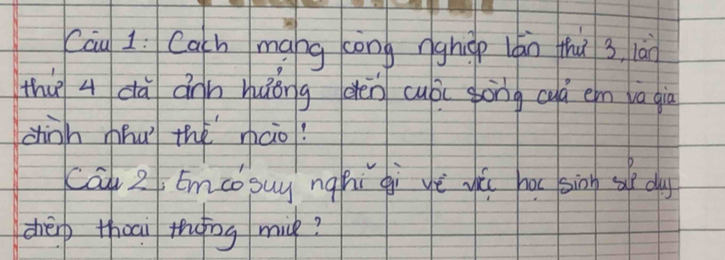 Câu 1: Cách mạng công nghiệp lần thứ 3, lần
thứ 4 đã ảnh hưởng đến cuộc sống của em và gia
đình như thế nào!
Câu 2: Em có suy nghĩ gì về việc học sinh sử dụng
điện thoại thông min?